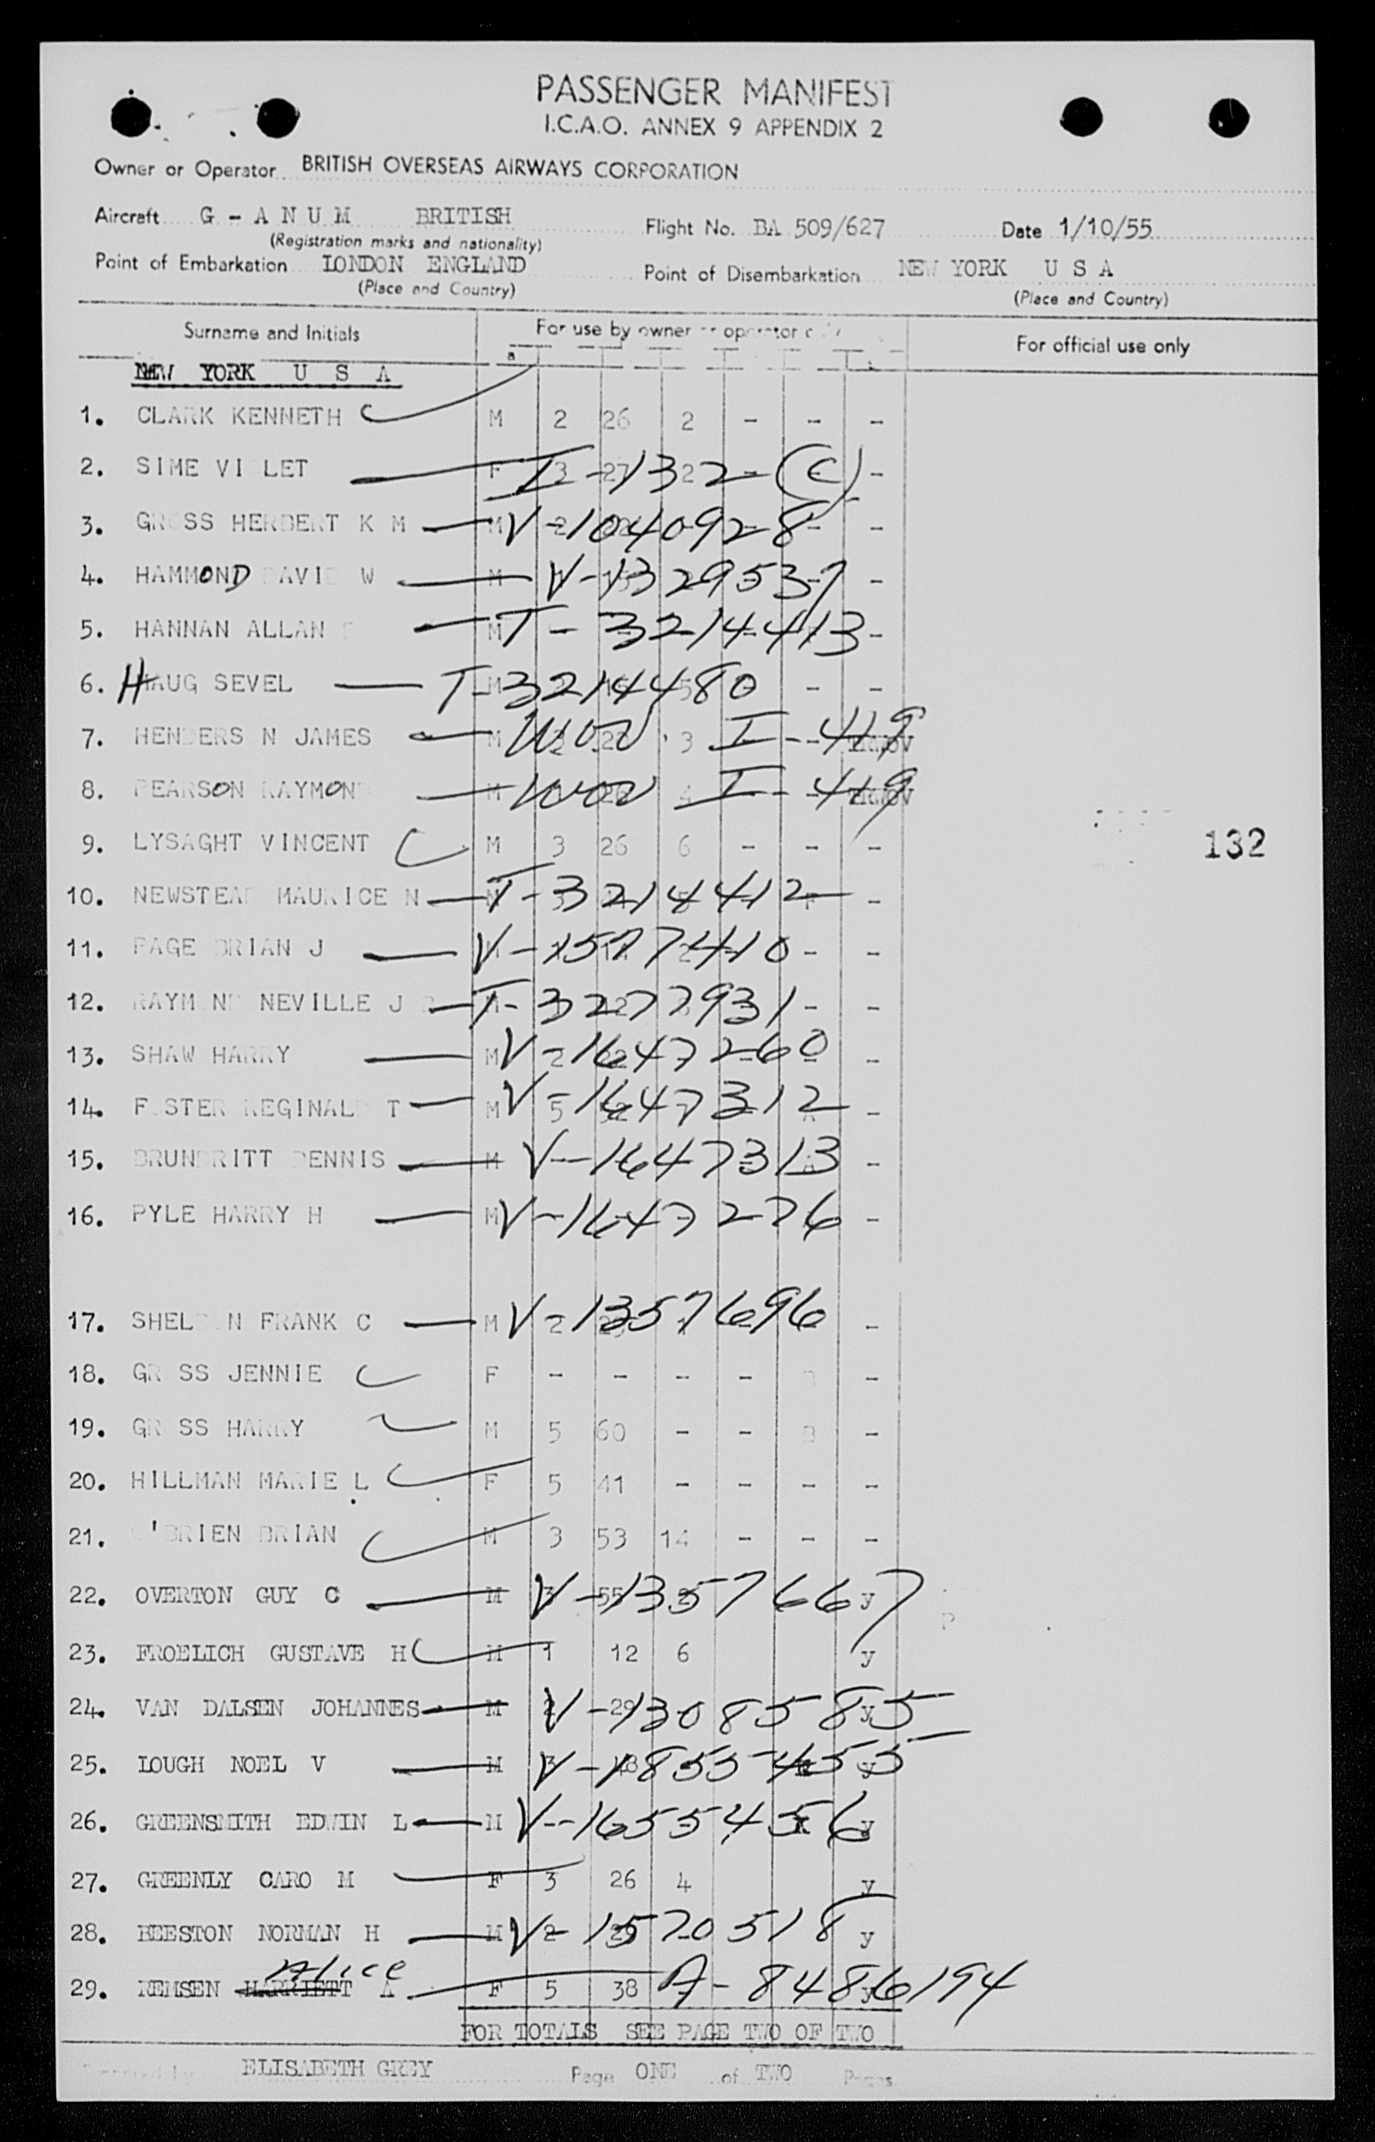 PASSENGER MANIFEST
I.C.A.O. ANNEX 9 APPENDIX 2
Owner or Operator BRITISH OVERSEAS AIRWAYS CORPORATION
Aircraft G - A N U M BRITISH Flight No. BA 509/627 Date 1/10/55
(Registration marks and nationality)
Point of Embarkation LONDON ENGLAND Point of Disembarkation NEW YORK U S A
(Place and Country) (Place and Country)
Surname and Initials For use by owner or operator For official use only
a
NEW YORK U S A
1. CLARK KENNETH C M 2 26 2 - - -
2. SIME VI LET F I-132-(C) -
3. GROSS HERBERT K M M V-1040928 - -
4. HAMMOND DAVID W M V-1329537 -
5. HANNAN ALLAN M T-3214413 -
6. HAUG SEVEL T-3214480 - -
7. HENDERS N JAMES M WOV 3 I-419
8. PEARSON RAYMOND M WOV 4 I-419
9. LYSAGHT VINCENT C M 3 26 6 - - -
132
10. NEWSTEAD MAURICE N T-3214412 -
11. PAGE BRIAN J V-1577410 - -
12. RAYM ND NEVILLE J T-3277931 - -
13. SHAW HARRY M V-1647260 -
14. F STER REGINALD T M V-1647312 -
15. BRUNDRITT DENNIS M V-1647313 -
16. PYLE HARRY H M V-1647276 -
17. SHELD N FRANK C M V-1357696 -
18. GR SS JENNIE C F - - - - -
19. GR SS HARRY M 5 60 - - B -
20. HILLMAN MARIE L C F 5 41 - - - -
21. 'BRIEN BRIAN C M 3 53 14 - - -
22. OVERTON GUY C M V-1357667 y
23. FROELICH GUSTAVE H C M 1 12 6 y
24. VAN DALSEN JOHANNES M V-1308585 y
25. LOUGH NOEL V M V-1855455 y
26. GREENSMITH EDWIN L M V-1655456 y
27. GREENLY CARO M F 3 26 4 y
28. BEESTON NORMAN H M V-1570518 y
Alice
29. REMSEN HARRIETT A F 5 38 A-8486194
FOR TOTALS SEE PAGE TWO OF TWO
ELISABETH GREY Page ONE of TWO Pages